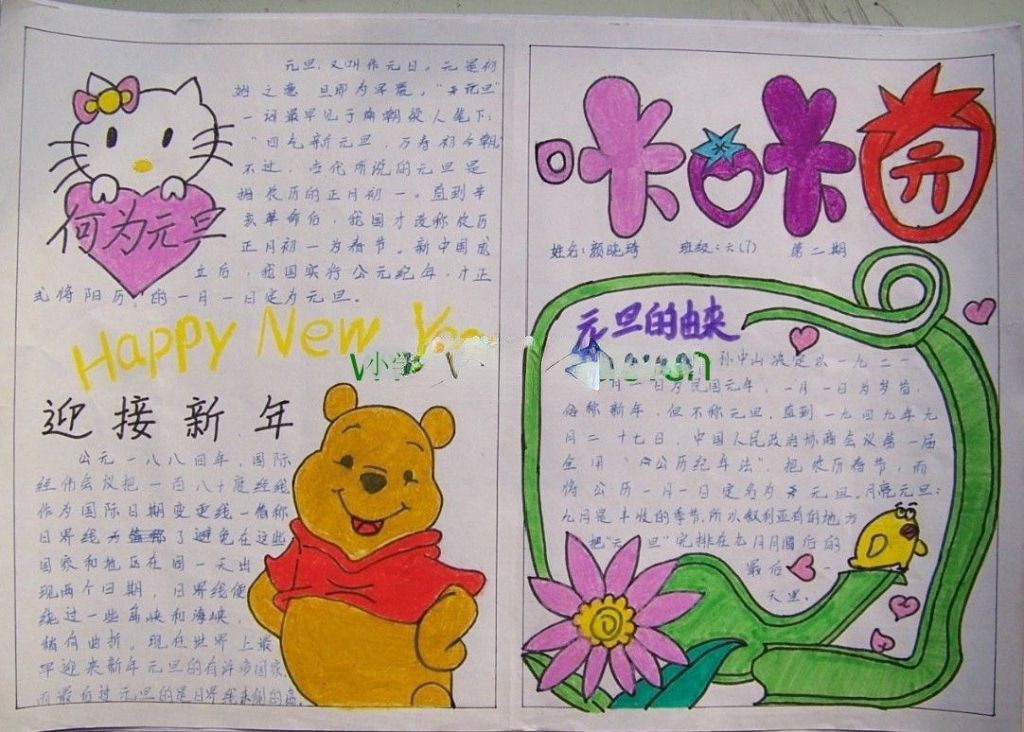 元旦，又叫作元日。元是初
始之意，旦即为早晨，"元旦"
一词最早见于南朝梁人笔下：
"四气新元旦，万寿初今朝
不过，当代所说的元旦是
指农历的正月初一。直到辛
亥革命后，我国才改称农历
正月初一为春节。新中国成
立后，我国实行公元纪年，才正
式将阳历的一月一日定为元旦。
何为元旦
Happy New
小学
迎接新年
公元一八八四年，国际
经伟会议把一百八十度经线
作为国际日期变更线一简称
日界线 了避免在这些
国家和地区在同一天出
现两个日期，日界线便
绕过一些岛峡和海峡，
稍有曲折。现在世界上最
早迎来新年元旦的有许多国家，
而最后过元旦的是日界线东侧的
咔咔园
元
姓名：颜晓琦 班级：六（7） 第二期
元旦的由来
孙中山决定以一九一一
月一日为民国元年，一月一日为岁首，
俗称新年，但不称元旦，直到一九四九年九
月二十七日，中国人民政治协商会议第一届
全用"公历纪年法"，把农历春节，而
将公历一月一日定名为元旦。月亮元旦：
九月是丰收的季节，所以叙利亚有的地方
把"元旦"安排在九月月圆后的
最后一
天里。